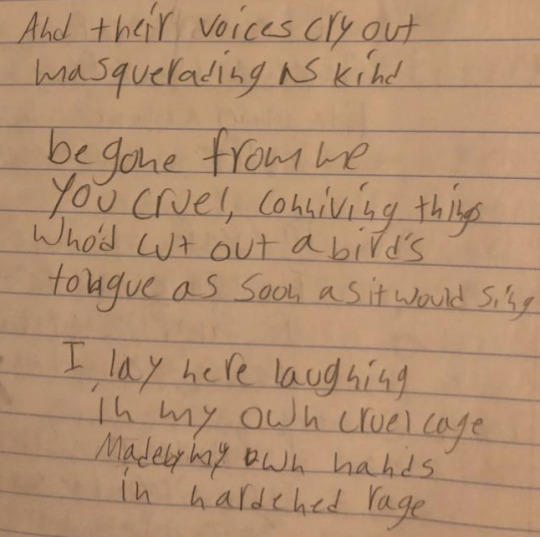 And their voices cry out
masquerading as kind
be gone from me
you cruel, conniving things
Who'd cut out a bird's
tongue as soon as it would sing
I lay here laughing
in my own cruel cage
Made by my own hands
in hardened rage